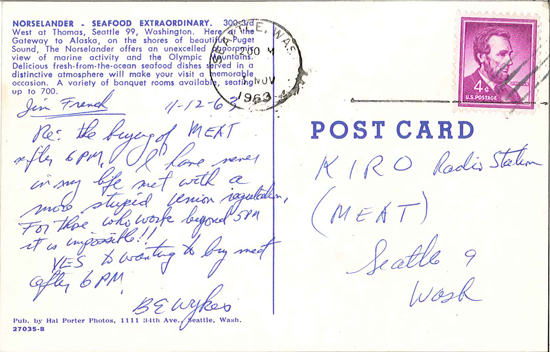 NORSELANDER - SEAFOOD EXTRAORDINARY. 300-3rd
West at Thomas, Seattle 99, Washington. Here at the
Gateway to Alaska, on the shores of beautiful Puget
Sound, The Norselander offers an unexcelled panoramic
view of marine activity and the Olympic Mountains.
Delicious fresh-from-the-ocean seafood dishes served in a
distinctive atmosphere will make your visit a memorable
occasion. A variety of banquet rooms available, seating
up to 700.
SEATTLE, WAS
200 M
NOV
1963
4¢
U.S. POSTAGE
Jim French 11-12-63
Re: the buying of MEAT
after 6 PM, I have never
in my life met with a
more stupid union regulation,
For those who work beyond 5PM
it is impossible!!
YES to wanting to buy meat
after 6 PM
B E Wykes
POST CARD
KIRO Radio Station
(MEAT)
Seattle 9
Wash
Pub. by Hal Porter Photos, 1111 34th Ave., Seattle, Wash.
27035-B